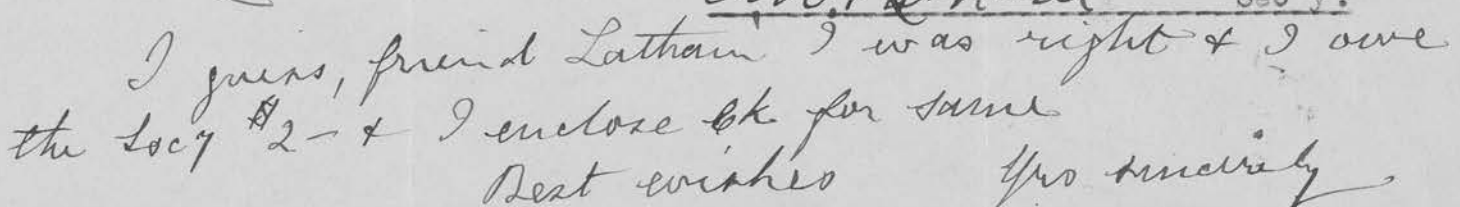 Secy.
I guess, friend Latham I was right & I owe
the Socy $2 - & I enclose ck for same
Best wishes Yrs sincerely